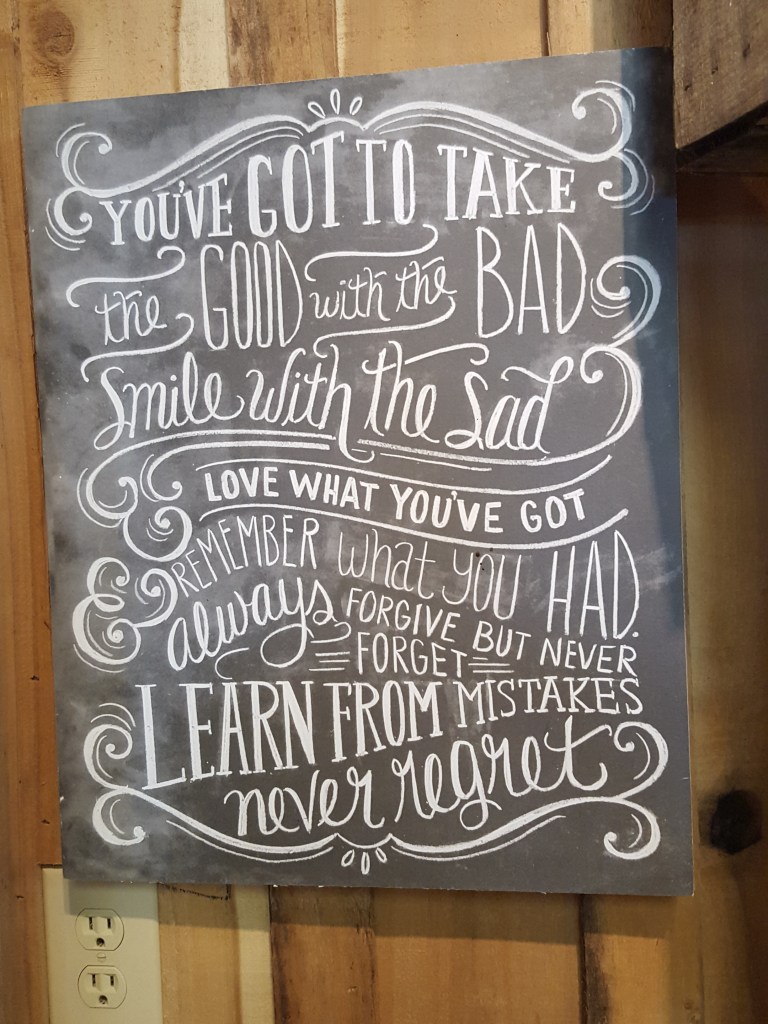 YOU'VE GOT TO TAKE
the GOOD with the BAD
Smile with the Sad
LOVE WHAT YOU'VE GOT
& REMEMBER what YOU HAD.
always FORGIVE BUT NEVER
FORGET
LEARN FROM MISTAKES
never regret